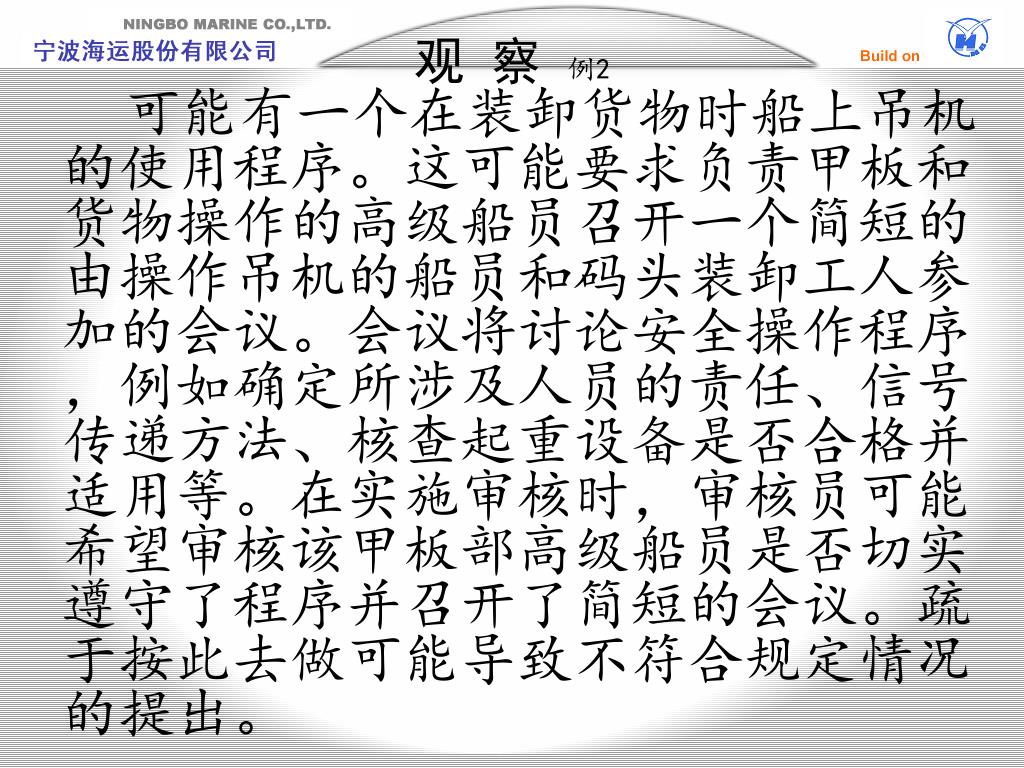 NINGBO MARINE CO.,LTD.
宁波海运股份有限公司
观 察 例2
Build on
可能有一个在装卸货物时船上吊机
的使用程序。这可能要求负责甲板和
货物操作的高级船员召开一个简短的
由操作吊机的船员和码头装卸工人参
加的会议。会议将讨论安全操作程序
，例如确定所涉及人员的责任、信号
传递方法、核查起重设备是否合格并
适用等。在实施审核时，审核员可能
希望审核该甲板部高级船员是否切实
遵守了程序并召开了简短的会议。疏
于按此去做可能导致不符合规定情况
的提出。